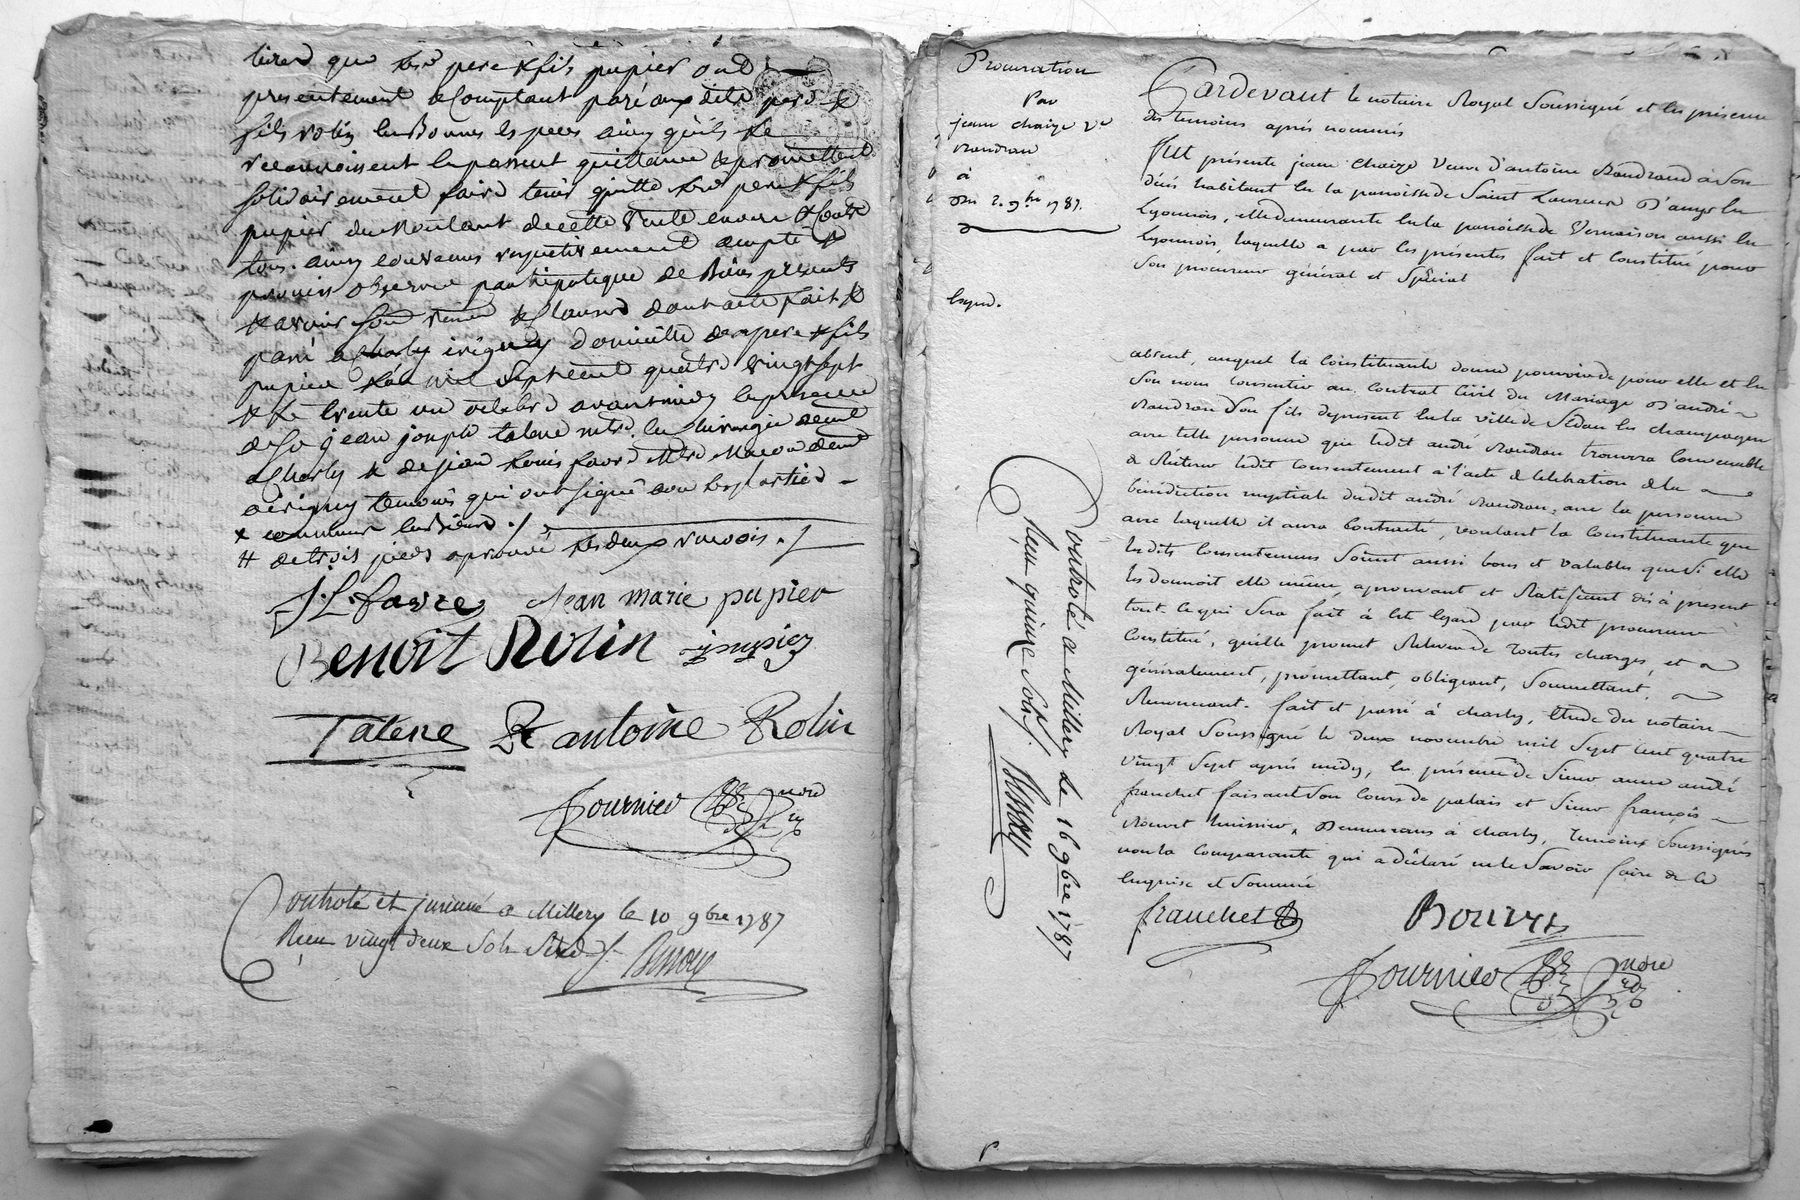 que pere & fils papier ont
presentement & Comptant payé aux dits pere &
fils rolin en Bonnes especes ainsy qu'ils Le
reconnoissent en passent quittance & promettent
solidairement faire tenir quitte pere & fils
papier du Montant de cette Vente envers & Contre
tous. ainsy convenus respectivement accepté &
promis observer par hipoteque de Biens presents
& avenir sous renon & Clauses dont acte fait &
passé a Charly irigny domicille des pere & fils
papier L'an mil Sept Cent quatre vingt sept
& Le trente un octobre avant midy en presence
de Sr jean joseph talene mtre en chirurgie demt
a Charly & de jean Louis favre Mtre Macon demt
a irigny temoins qui ont signé avec les parties
de trois pieds aprouvé les deux ranvois
J. L. favre jean marie papier
Benoit Rolin jpapier
Talene antoine Rolin
fournier nore
Controlé et insinué a Millery le 10 9bre 1787
Reçu vingt deux Sols
Procuration
Par
jeanne chaize ve
Randran
à
Du 2. 9bre 1787.
Pardevant le notaire Royal Soussigné et en présence
des temoins après nommés
Fut présente jeanne chaize Veuve d'antoine Randrand à Son
décès habitant en la paroisse de Saint Laurent D'auny en
Lyonnois, elle demeurante en la paroisse de Vernaison aussi en
Lyonnois, laquelle a par les présentes fait et Constitué pour
Son procureur général et Spécial
absent, auquel la Constituante donne pouvoir de pour elle et en
Son nom Consentir au Contrat Civil du Mariage D'andré
Randran Son fils de present en la ville de Sedan en champagne
avec telle personne que ledit andré Randran trouvera Convenable
& Réiterer ledit Consentement à l'acte de Celebration & la
bénédiction nuptiale dudit andré Randran avec la personne
avec laquelle il aura Contracté, voulant la Constituante que
lesdits Consentemens Soient aussi bons et valables que Si elle
les donnoit elle même, aprouvant et Ratifiant dès à présent
tout ce qui Sera fait à cet égard par ledit procureur
Constitué, qu'elle promet Relever de toutes charges, et
généralement, promettant, obligeant, Soumettant,
Renonçant. fait et passé à charly, étude du notaire
Royal Soussigné le deux novembre mil Sept Cent quatre
vingt Sept après midy, en présence de Sieur anne andré
franchet faisant Son Cours de palais et Sieur françois
Bouvet huissier, Demeurans à charly, Temoins Soussignés
non la Comparante qui a déclaré ne le Savoir faire de ce
enquise et Sommée
franchet Bouvet
fournier nore
Controlé a Millery Le 16 9bre 1787
Reçu quinze Sols